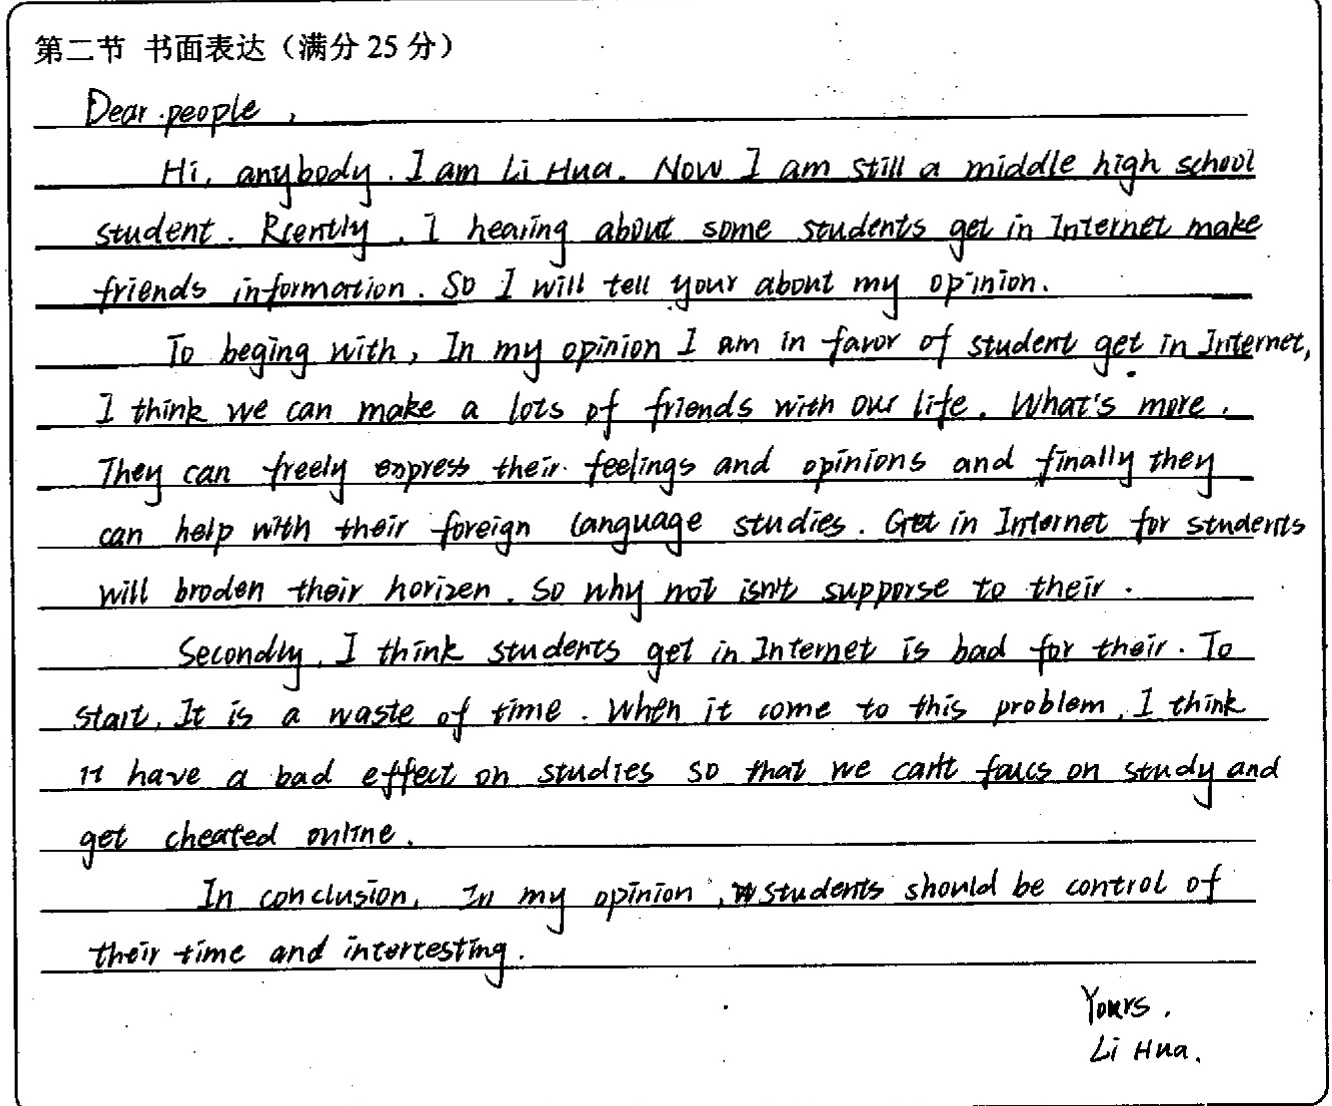 第二节 书面表达（满分 25 分）
Dear people,
Hi, anybody. I am Li Hua. Now I am still a middle high school
student. Rcently, I hearing about some students get in Internet make
friends information. So I will tell your about my opinion.
To beging with, In my opinion I am in favor of student get in Internet,
I think we can make a lots of friends with our life. What's more,
They can freely express their feelings and opinions and finally they
can help with their foreign language studies. Get in Internet for students
will broden their horizen. So why not isn't supporse to their.
Secondly, I think students get in Internet is bad for their. To
start, It is a waste of time. When it come to this problem, I think
it have a bad effect on studies so that we can't foucs on study and
get cheated online.
In conclusion, In my opinion, students should be control of
their time and intertesting.
Yours,
Li Hua.